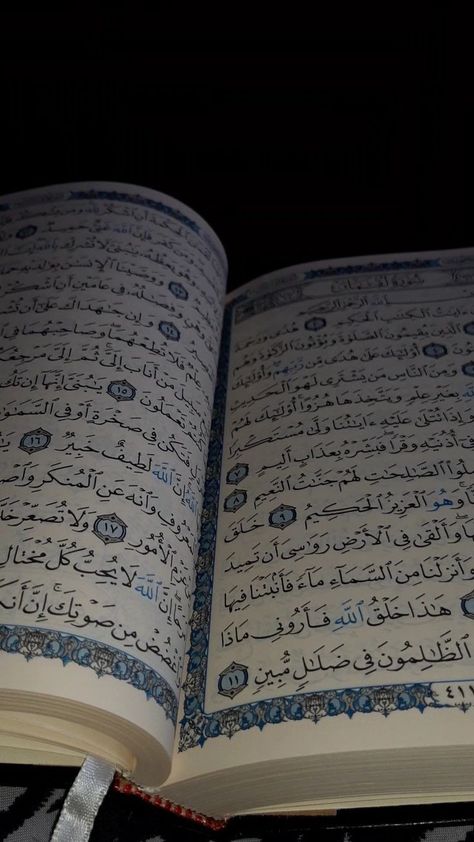 سُورَةُ لُقْمَانَ
ٱللَّهِ ٱلرَّحْمَٰنِ ٱلرَّحِيمِ
ٱلْكِتَٰبِ ٱلْحَكِيمِ ٢ هُدًى وَرَحْمَةً
ٱلَّذِينَ يُقِيمُونَ ٱلصَّلَوٰةَ وَيُؤْتُونَ ٱلزَّكَوٰةَ وَهُم
٤ أُو۟لَٰٓئِكَ عَلَىٰ هُدًى مِّن رَّبِّهِمْ وَأُو۟لَٰٓئِكَ
٥ وَمِنَ ٱلنَّاسِ مَن يَشْتَرِى لَهْوَ ٱلْحَدِيثِ
بِغَيْرِ عِلْمٍ وَيَتَّخِذَهَا هُزُوًا أُو۟لَٰٓئِكَ لَهُمْ
وَإِذَا تُتْلَىٰ عَلَيْهِ ءَايَٰتُنَا وَلَّىٰ مُسْتَكْبِرًا
فِىٓ أُذُنَيْهِ وَقْرًا فَبَشِّرْهُ بِعَذَابٍ أَلِيمٍ ٧
ٱلصَّٰلِحَٰتِ لَهُمْ جَنَّٰتُ ٱلنَّعِيمِ ٨
وَهُوَ ٱلْعَزِيزُ ٱلْحَكِيمُ ٩ خَلَقَ
وَأَلْقَىٰ فِى ٱلْأَرْضِ رَوَٰسِىَ أَن تَمِيدَ
وَأَنزَلْنَا مِنَ ٱلسَّمَآءِ مَآءً فَأَنۢبَتْنَا فِيهَا
هَٰذَا خَلْقُ ٱللَّهِ فَأَرُونِى مَاذَا
ٱلظَّٰلِمُونَ فِى ضَلَٰلٍ مُّبِينٍ ١١
٤١١
ٱلْحِكْمَةَ أَنِ ٱشْكُرْ لِلَّهِ وَمَن يَشْكُرْ
كَفَرَ فَإِنَّ ٱللَّهَ غَنِىٌّ حَمِيدٌ ١٢
وَهُوَ يَعِظُهُۥ يَٰبُنَىَّ لَا تُشْرِكْ بِٱللَّهِ
١٣ وَوَصَّيْنَا ٱلْإِنسَٰنَ بِوَٰلِدَيْهِ
وَهْنٍ وَفِصَٰلُهُۥ فِى عَامَيْنِ أَنِ ٱشْكُرْ
١٤ وَإِن جَٰهَدَاكَ عَلَىٰٓ أَن تُشْرِكَ
عِلْمٌ فَلَا تُطِعْهُمَا وَصَاحِبْهُمَا فِى
سَبِيلَ مَنْ أَنَابَ إِلَىَّ ثُمَّ إِلَىَّ مَرْجِعُكُمْ
تَعْمَلُونَ ١٥ يَٰبُنَىَّ إِنَّهَآ إِن تَكُ
فَتَكُن فِى صَخْرَةٍ أَوْ فِى ٱلسَّمَٰوَٰتِ
إِنَّ ٱللَّهَ لَطِيفٌ خَبِيرٌ ١٦
وَٱنْهَ عَنِ ٱلْمُنكَرِ وَٱصْبِرْ
عَزْمِ ٱلْأُمُورِ ١٧ وَلَا تُصَعِّرْ خَدَّكَ
إِنَّ ٱللَّهَ لَا يُحِبُّ كُلَّ مُخْتَالٍ
وَٱغْضُضْ مِن صَوْتِكَ إِنَّ أَنكَرَ